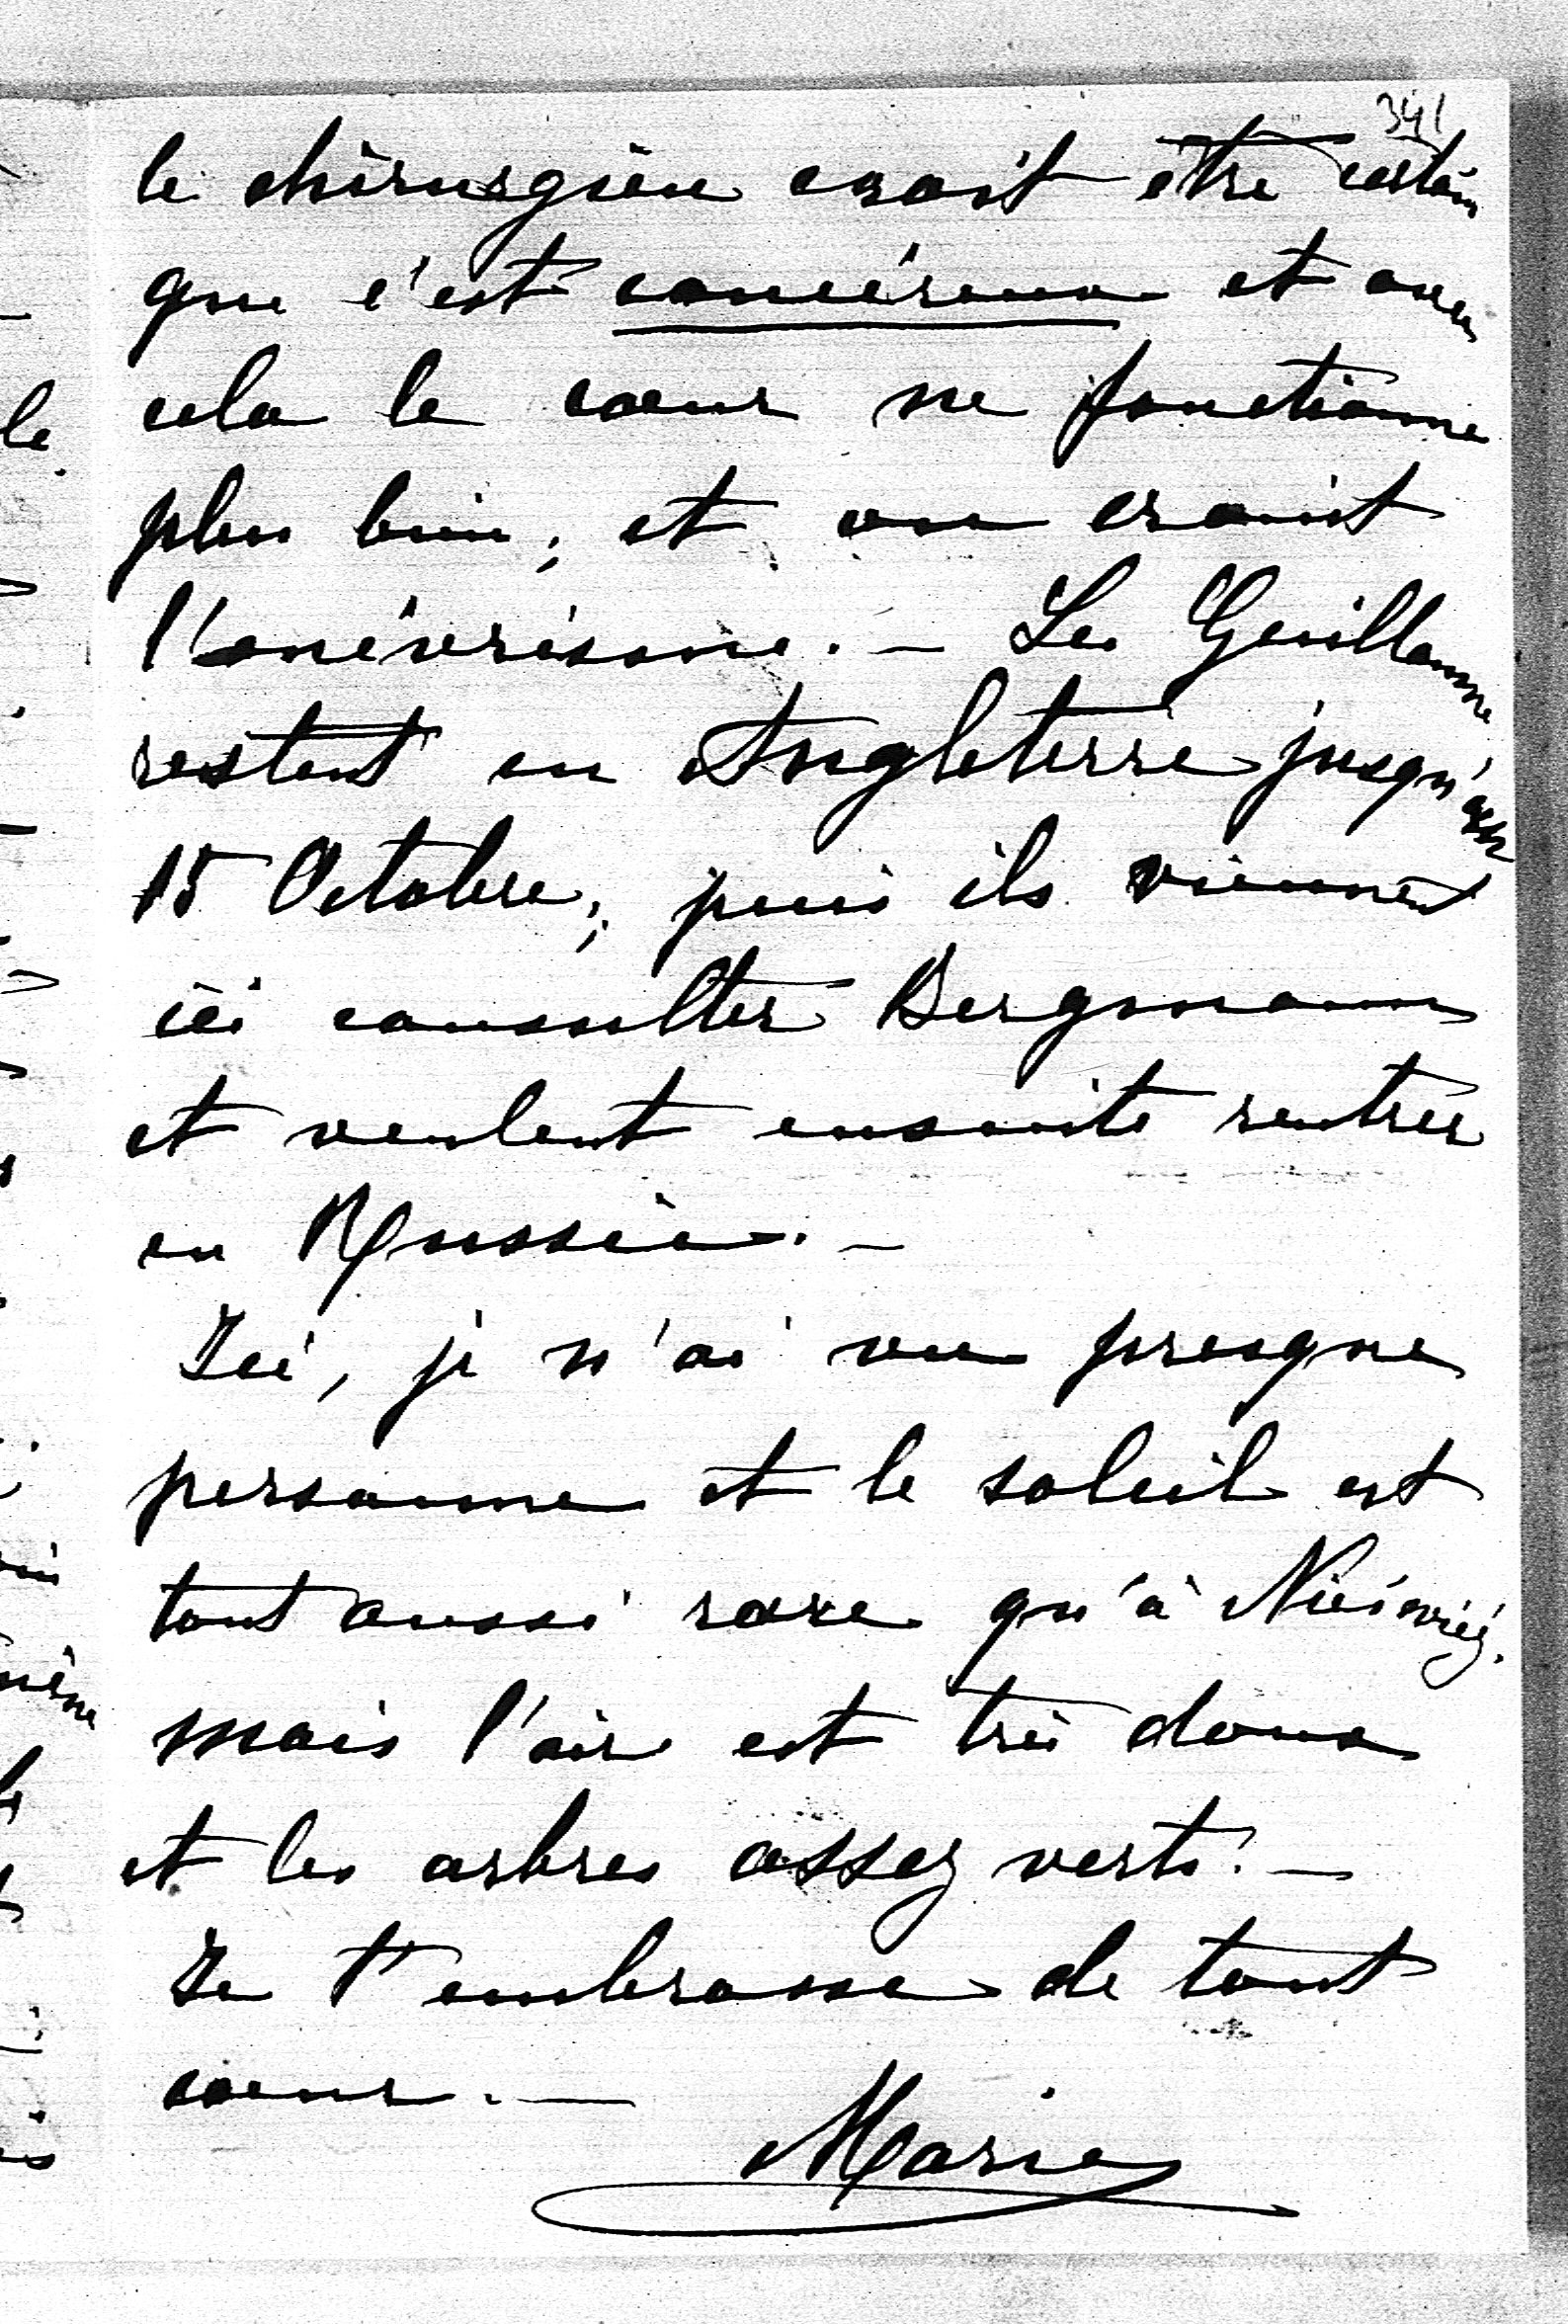 341
le chirurgien croit être certain
que c'est cancéreux et avec
cela le cœur ne fonctionne
plus bien, et on craint
l'anévrisme. — Les Guillaume
restent en Angleterre jusqu'au
15 Octobre, puis ils viennent
ici consulter Bergmann
et veulent ensuite rentrer
en Russie. —
Ici, je n'ai vu presque
personne et le soleil est
tout aussi rare qu'à
mais l'air est très doux
et les arbres assez verts. —
Je t'embrasse de tout
cœur. —
Marie